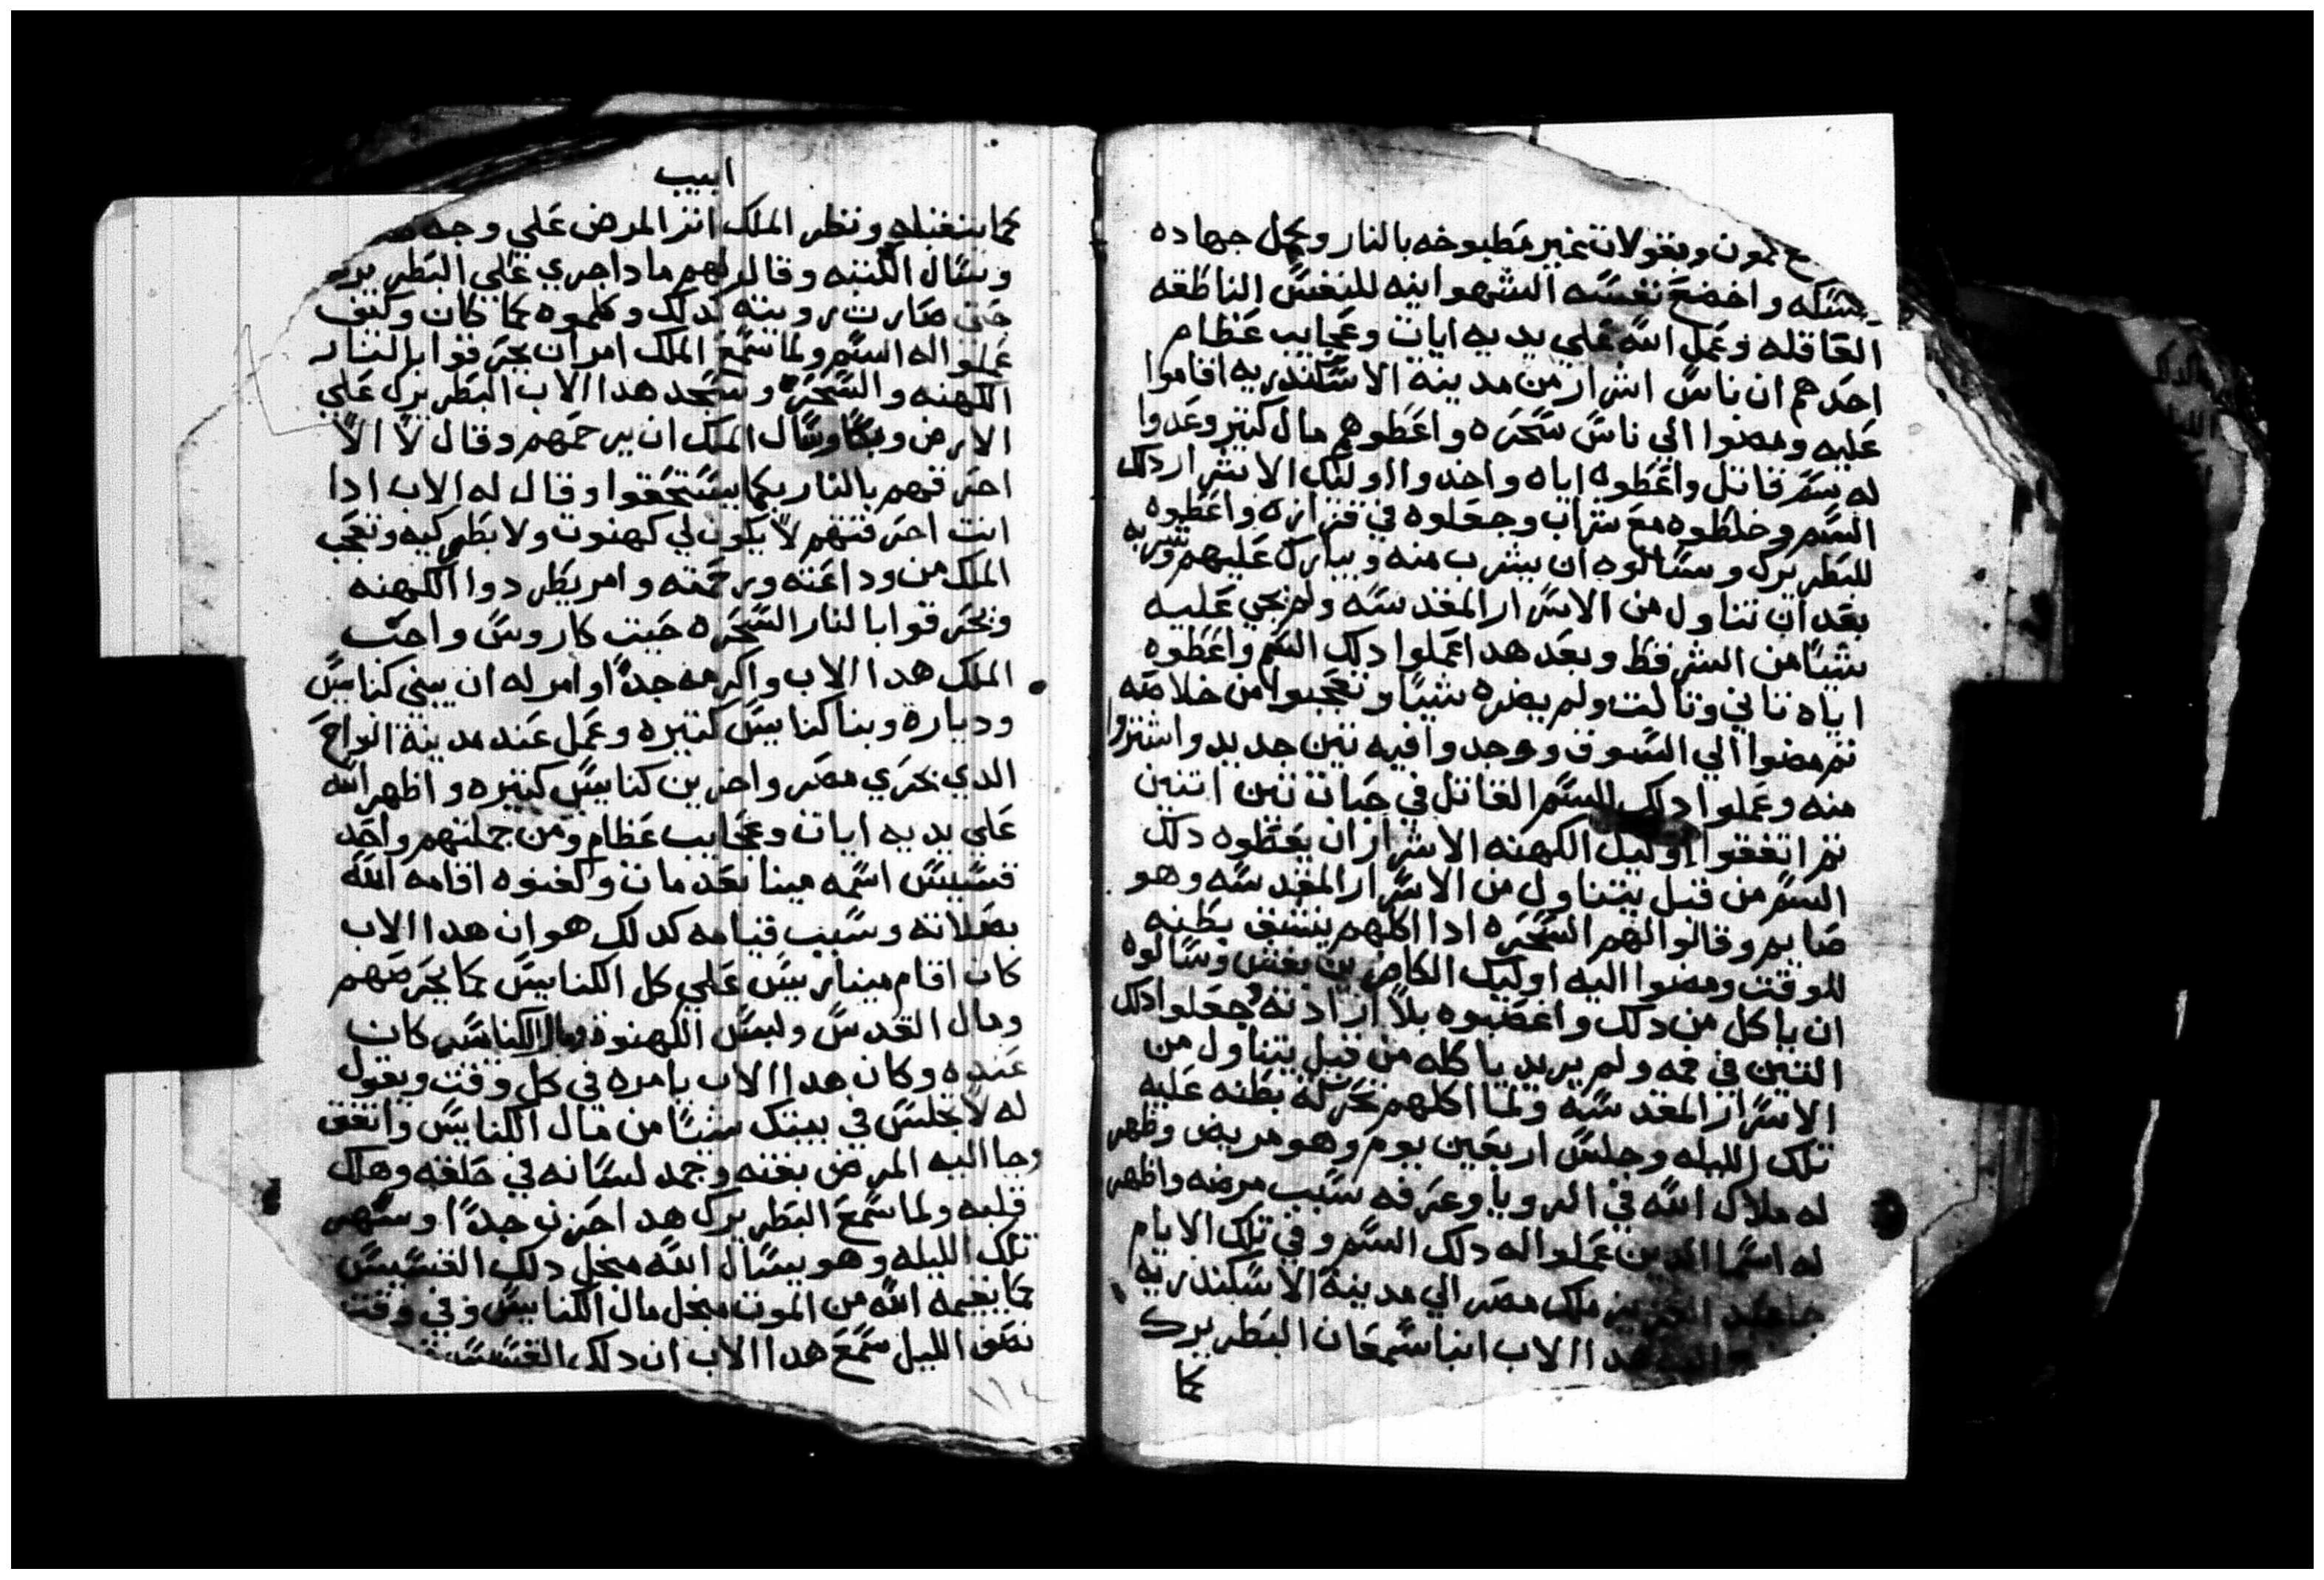 كمون وبقولات غير مطبوخه بالنار وبحمل جهاده
ونسكه واخضع نفسه الشهوانيه للنفس الناطقه
العاقله وعمل الله علي يديه ايات وعجايب عظام
احدهم ان ناس اشرار من مدينه الاسكندريه اقاموا
عليه ومضوا الي ناس سحره واعطوهم مال كتير وعدوا
له سم قاتل واعطوه اياه واخدوا اوليك الاشرار دلك
السم وخلطوه مع شراب وجعلوه في قزازه واعطوه
للبطريرك وسالوه ان يشرب منه ويبارك عليهم وشربه
بعد ان تناول من الاسرار المقدسه ولم يجي عليه
شيا من الشر فقط وبعد هدا عملوا دلك السم واعطوه
اياه تاني وتالت ولم يضره شيا وتعجبوا من خلاصه
تم مضوا الي السوق ووجدوا فيه تين جديد واشتروا
منه وعملوا دلك السم القاتل في حبات تين اتنين
تم اتفقوا اوليك الكهنه الاشرار ان يعطوه دلك
السم من قبل يتناول من الاسرار المقدسه وهو
صايم وقالوا لهم السحره ادا اكلهم ينشق بطنه
للوقت ومضوا اليه اوليك الكاهنين بغش وسالوه
ان ياكل من دلك واغصبوه بلا ارادته وجعلوا دلك
التين في فمه ولم يريد ياكله من قبل يتناول من
الاسرار المقدسه ولما اكلهم تحركة بطنه عليه
تلك الليله وجلس اربعين يوم وهو مريض وظهر
له ملاك الله في الرويا وعرفه سبب مرضه واظهر
له اسما الدين عملوا له دلك السم وفي تلك الايام
جا عبد العزيز ملك مصر الي مدينة الاسكندريه
اليه هدا الاب انبا سمعان البطريرك
كما
ابيب
كما يتقبله ونظر الملك اتر المرض علي وجهه
وسال الكتبه وقال لهم مادا جري علي البطريرك
حتي صارت رويته كدلك وكلموه بما كان وكيف
عملوا له السم ولما سمع الملك امر ان يحرقوا بالنار
الكهنه والسحره وسجد هدا الاب البطريرك علي
الارض وبكا وسال الملك ان يرحمهم وقال لا الا
احرقهم بالنار بكما يستحقوا وقال له الاب ادا
انت احرقتهم لا يكون لي كهنوت ولا بطركيه وتعجب
الملك من وداعته ورحمته وامر يطردوا الكهنه
ويحرقوا بالنار السحره حيت كاروس واحب
الملك هدا الاب واكرمه جدا وامر له ان يبني كنايس
وديارة وبنا كنايس كتيره وعمل عند مدينة الواح
الدي بحري مصر واخرين كنايس كتيره واظهر الله
علي يديه ايات وعجايب عظام ومن جملتهم واحد
قسيس اسمه مينا بعد مات وكفنوه اقامه الله
بصلاته وسبب قيامه كدلك هو ان هدا الاب
كان اقام مينا ريس علي كل الكنايس بما يحرصهم
ومال القدس ولبس الكهنوة ومال الكنايس كان
عنده وكان هدا الاب يامره في كل وقت ويقول
له لا تجلس في بيتك شيا من مال الكنايس واتفق
وجا اليه المرض بغته وجمد لسانه في حلقه وهلك
قلبه ولما سمع البطريرك هدا احزن جدا وسهر
تلك الليله وهو يسال الله مجل دلك القسيس
كما يقيمه الله من الموت مجل مال الكنايس وفي وقت
نصف الليل سمع هدا الاب ان دلك القسيس
١١٤